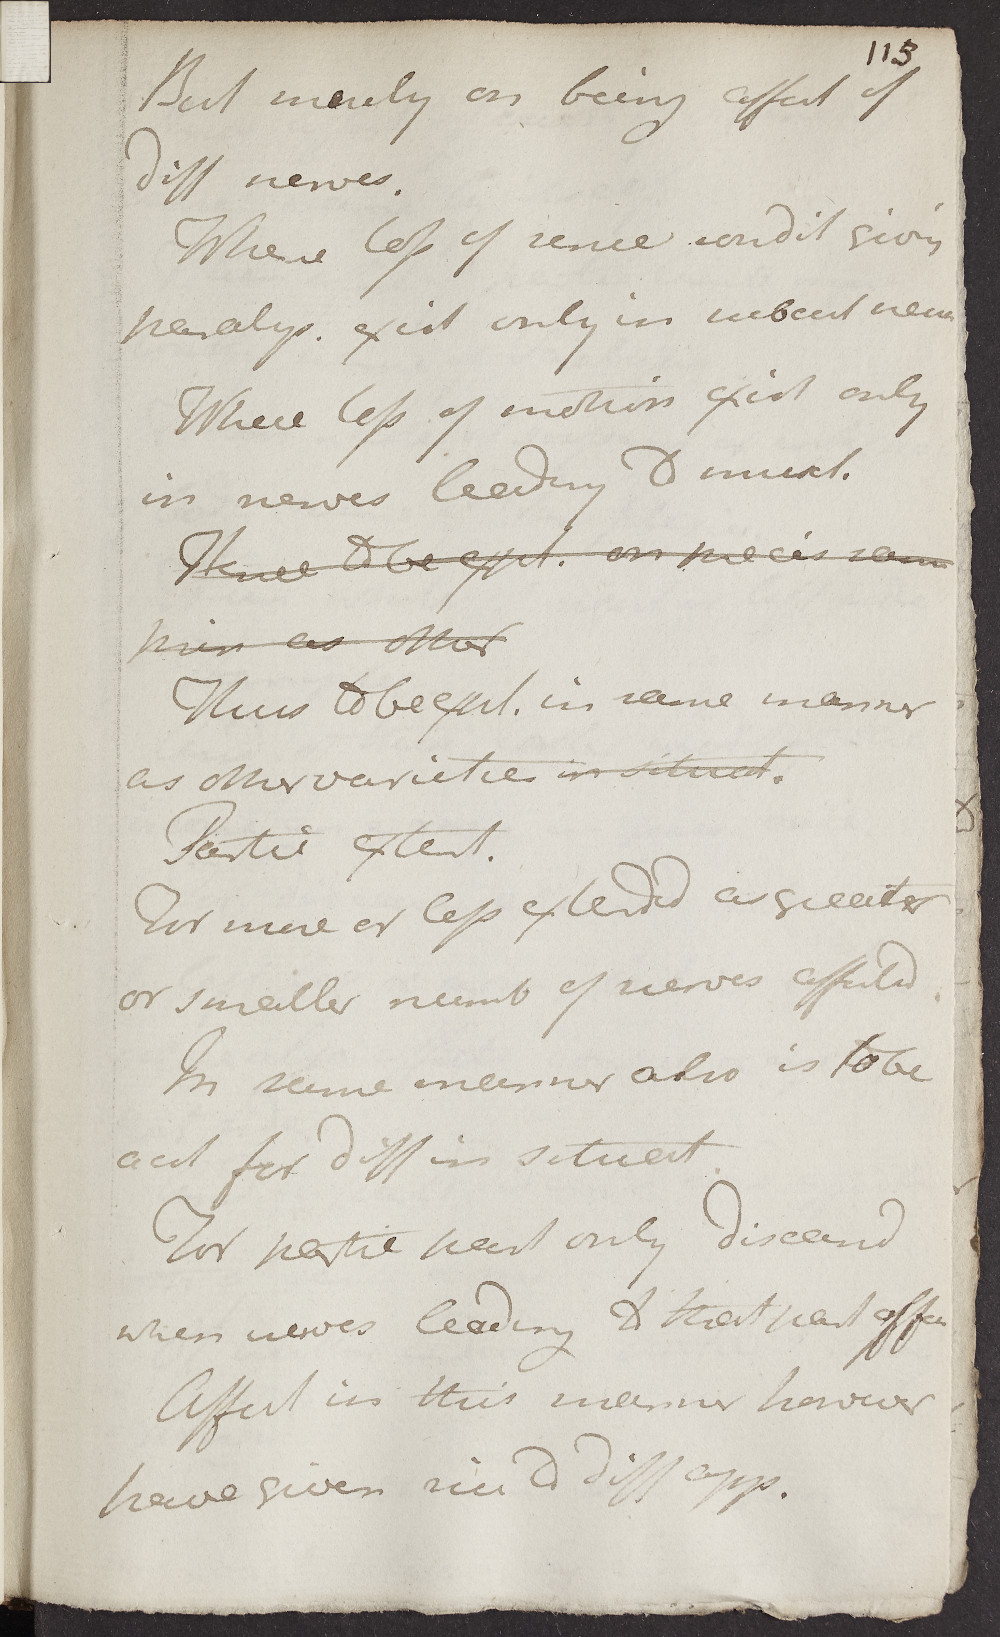 113
But merely on being affect of
diff nerves.
Where loss of sense condit givin
paralys. exist only in subcut nerv
Where loss of motion exist only
in nerves leading to muscl.
Hence to be expl. on precis sam
prin as other
Thus to be expl. in same manner
as other varieties in situat.
Partic extent.
For more or less extended as greater
or smaller numb of nerves affected.
In same manner also is to be
act for diff in situat.
For partic part only diseasd
when nerves leading to that part affec
Affect in this manner however
have given rise to diff app.